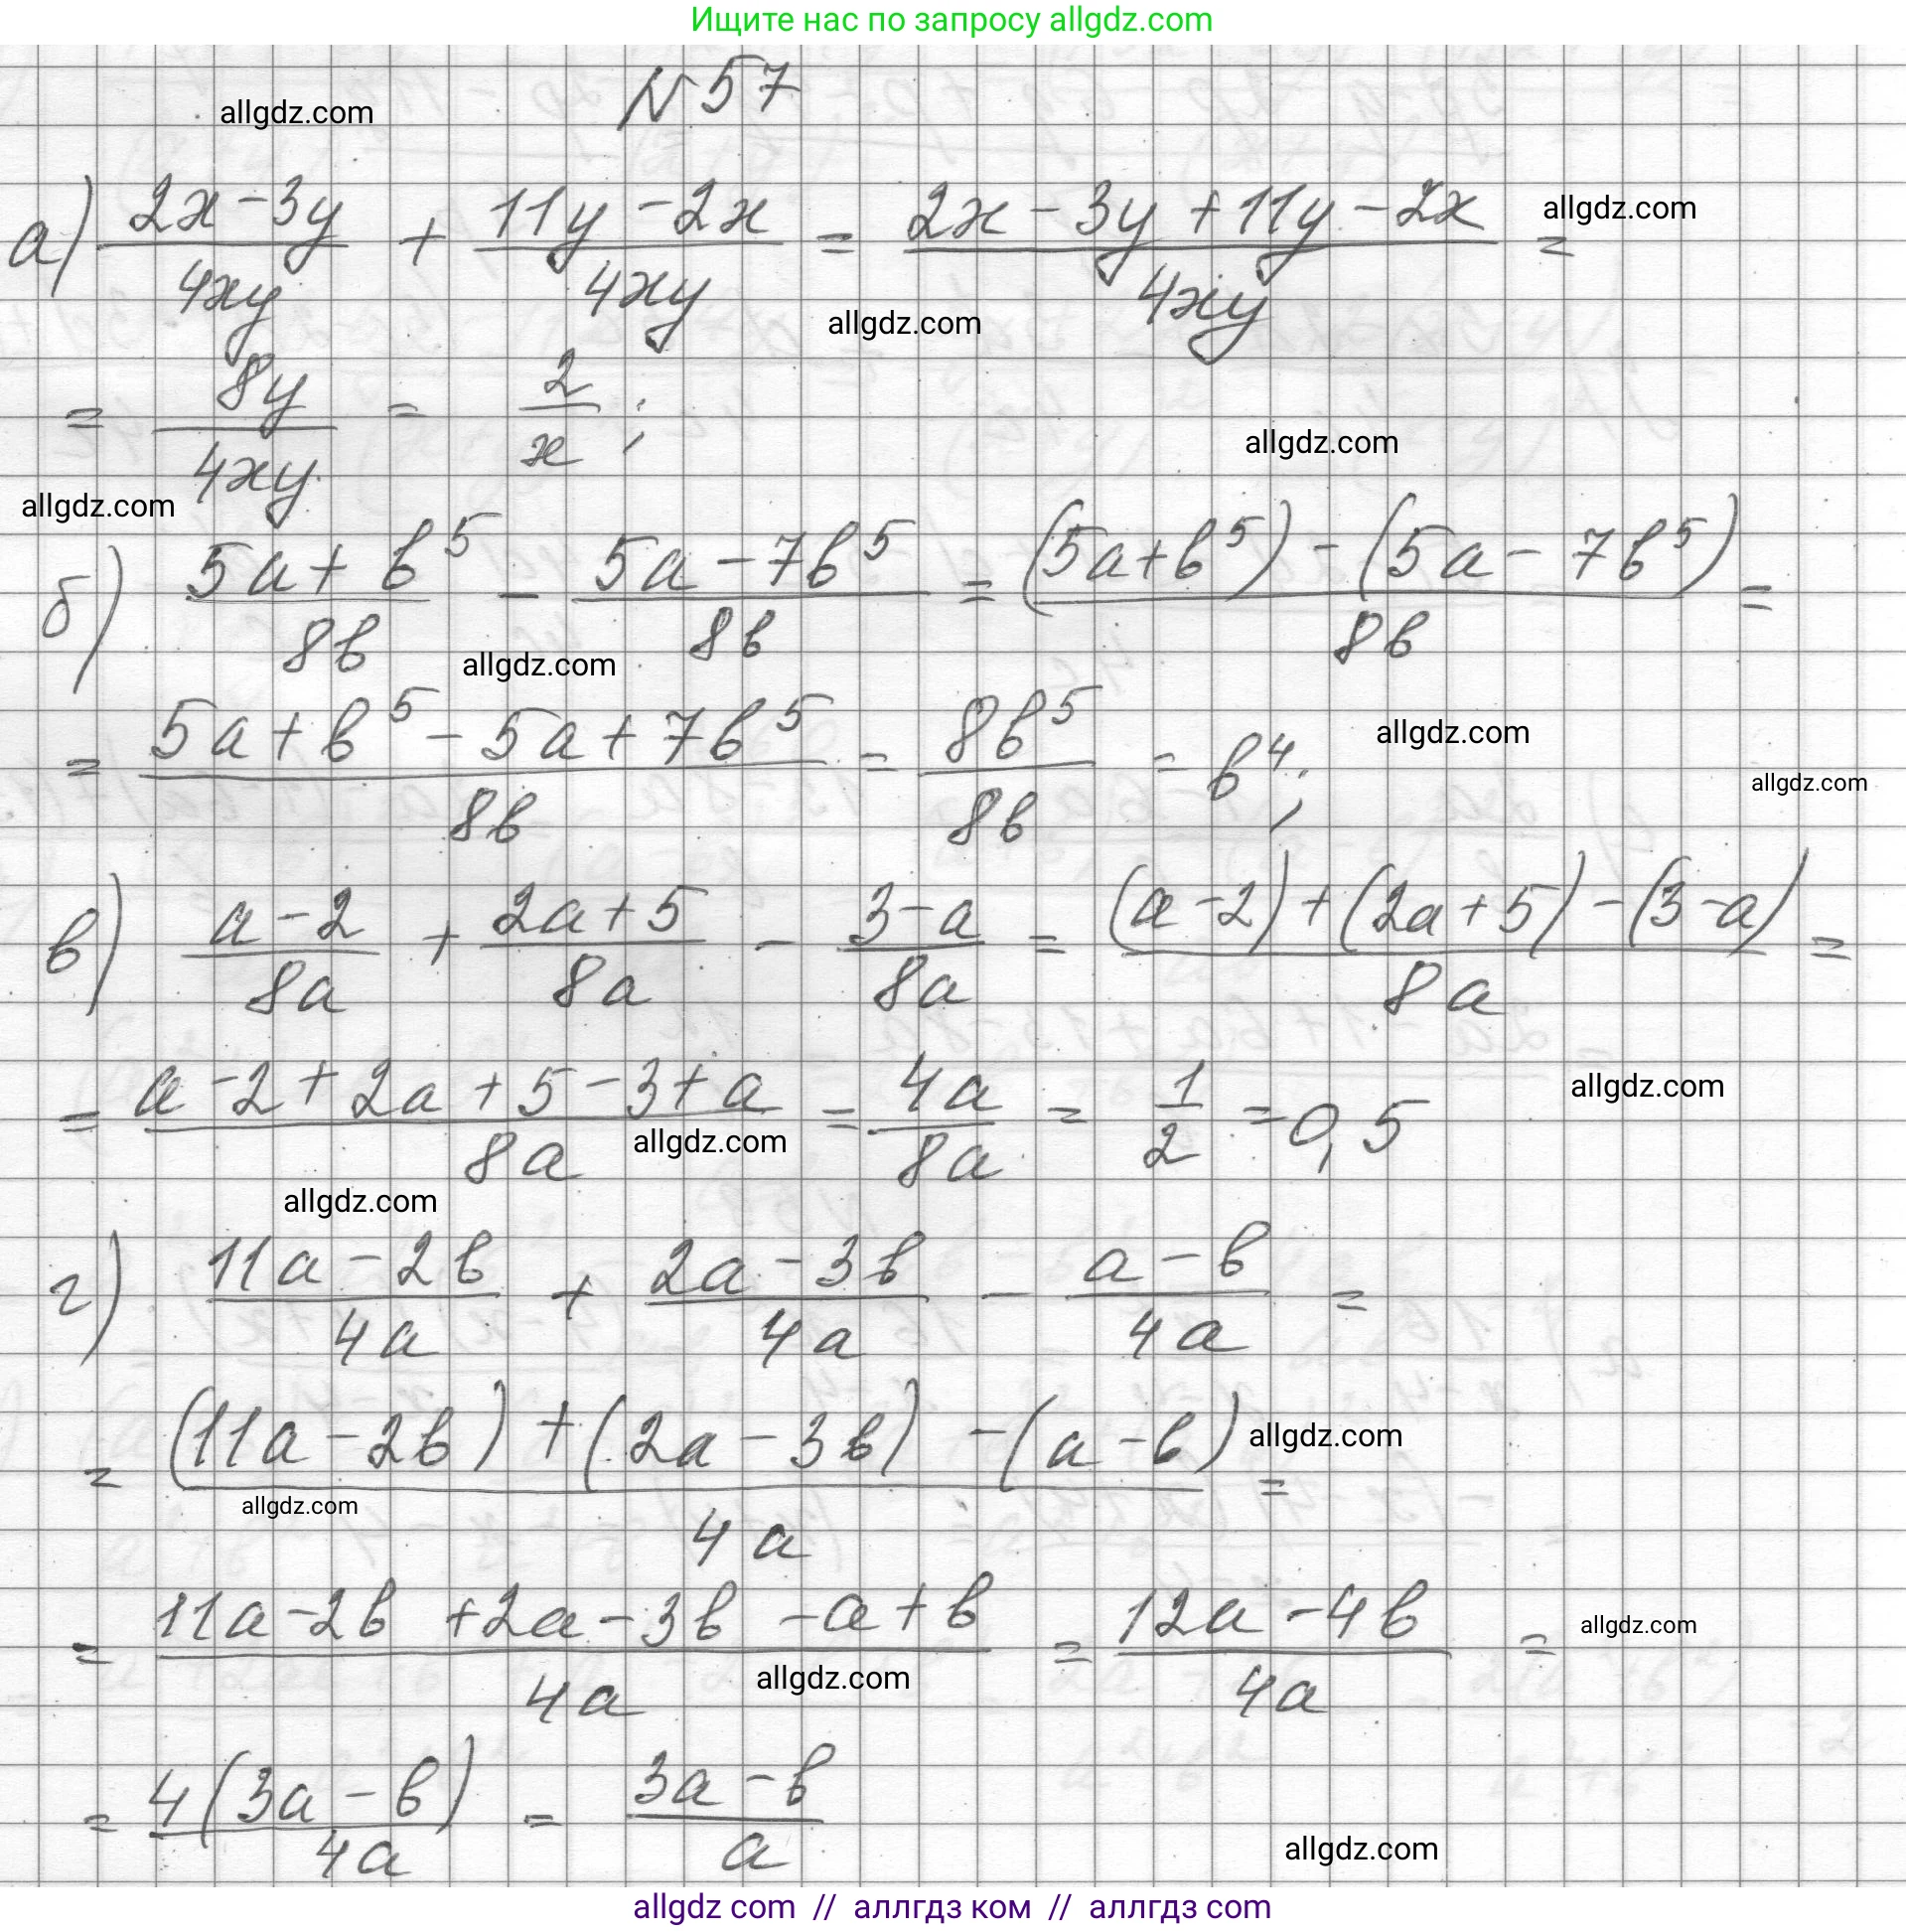 Ищите нас по запросу allgdz.com
allgdz.com
N 57
а) (2x - 3y)/(4xy) + (11y - 2x)/(4xy) = (2x - 3y + 11y - 2x)/(4xy) =
allgdz.com
allgdz.com
= (8y)/(4xy) = 2/x ;
allgdz.com
allgdz.com
б) (5a + b⁵)/(8b) - (5a - 7b⁵)/(8b) = ((5a + b⁵) - (5a - 7b⁵))/(8b) =
allgdz.com
= (5a + b⁵ - 5a + 7b⁵)/(8b) = (8b⁵)/(8b) = b⁴;
allgdz.com
allgdz.com
в) (a - 2)/(8a) + (2a + 5)/(8a) - (3 - a)/(8a) = ((a - 2) + (2a + 5) - (3 - a))/(8a) =
= (a - 2 + 2a + 5 - 3 + a)/(8a) = (4a)/(8a) = 1/2 = 0,5
allgdz.com
allgdz.com
allgdz.com
г) (11a - 2b)/(4a) + (2a - 3b)/(4a) - (a - b)/(4a) =
= ((11a - 2b) + (2a - 3b) - (a - b))/(4a) =
allgdz.com
allgdz.com
= (11a - 2b + 2a - 3b - a + b)/(4a) = (12a - 4b)/(4a) =
allgdz.com
allgdz.com
= (4(3a - b))/(4a) = (3a - b)/a
allgdz.com
allgdz com // аллгдз ком // аллгдз com